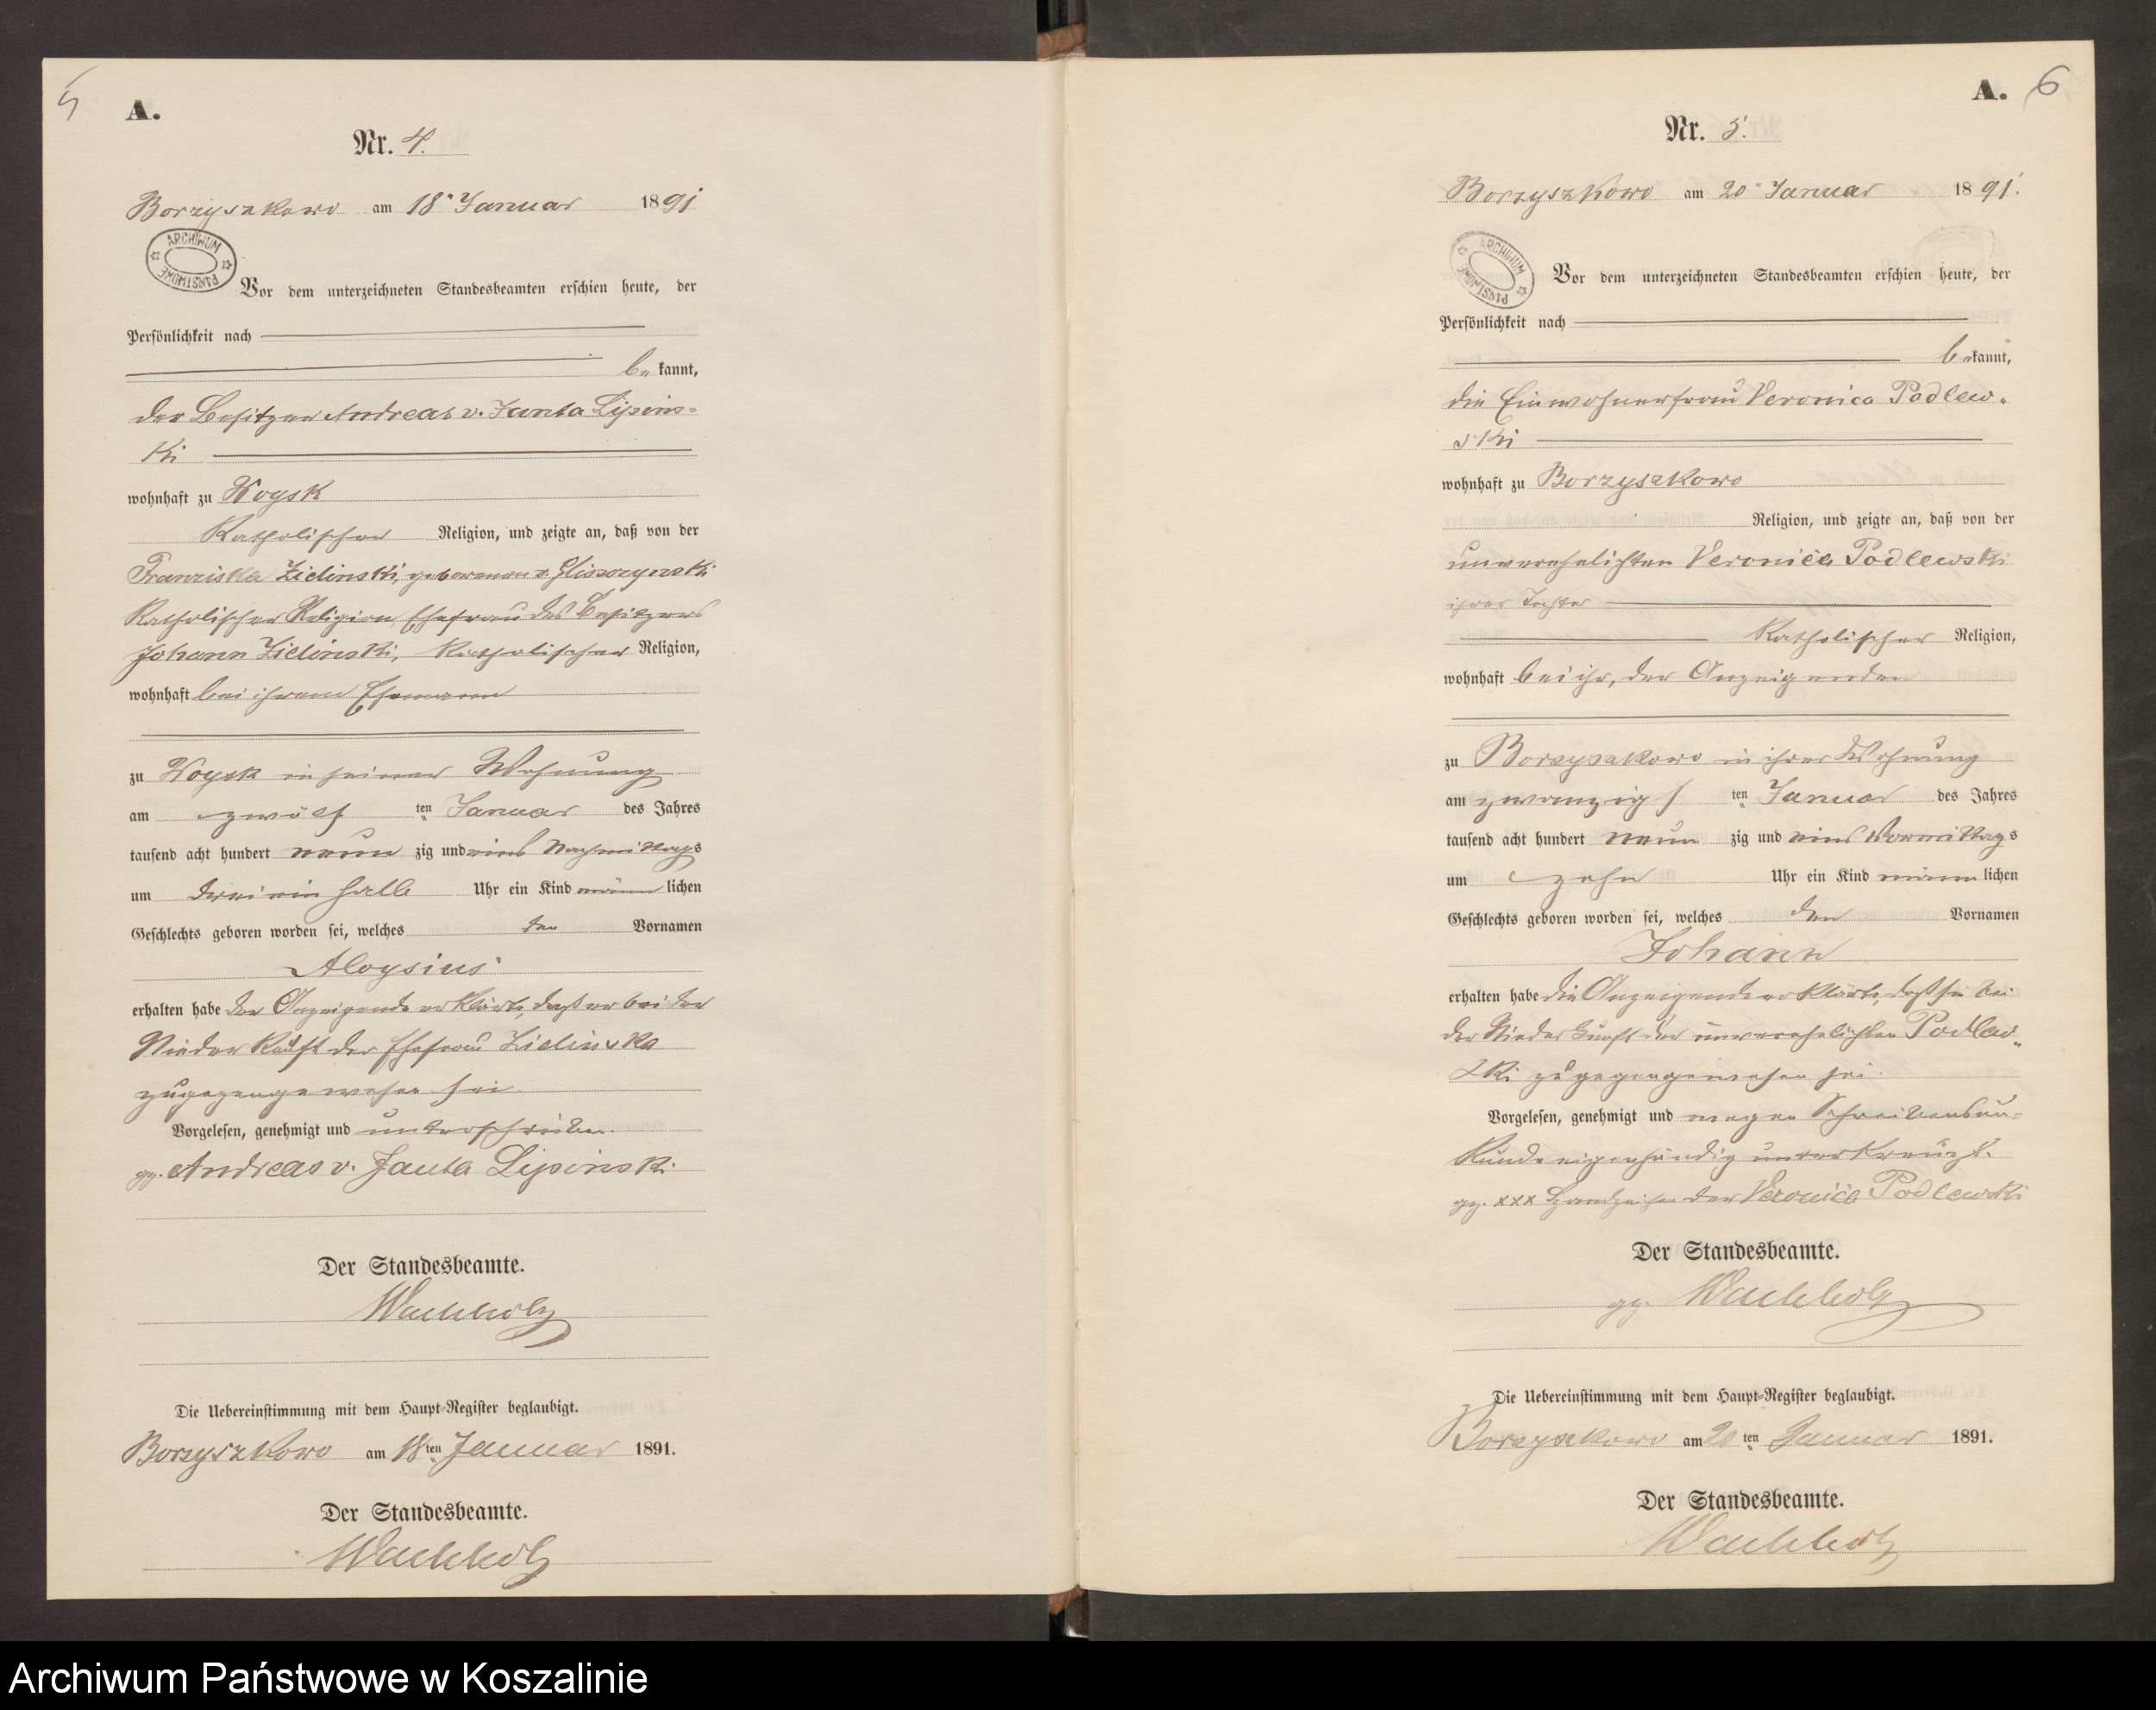 5
A.
Nr. 4.
Borzyszkowo am 18n Januar 1891
ARCHIWUM PAŃSTWOWE
Vor dem unterzeichneten Standesbeamten erschien heute, der
Persönlichkeit nach
be kannt,
der Besitzer Andreas v. Janta Lipins=
ki
wohnhaft zu Woysk
Katholischer Religion, und zeigte an, daß von der
Franziska Zielinski, geborenen v.
Katholischer Religion, Ehefrau des Besitzers
Johann Zielinski, Katholischer Religion,
wohnhaft bei ihrem Ehemann
zu Woysk in seiner Wohnung
am zwölf ten Januar des Jahres
tausend acht hundert neun zig und eins Nachmittags
um drei ein halb Uhr ein Kind männ lichen
Geschlechts geboren worden sei, welches den Vornamen
Aloysius
erhalten habe der Anzeigende erklärte, daß er bei der
Niederkunft der Ehefrau Zielinska
zugegengewesen sei.
Vorgelesen, genehmigt und unterschrieben.
gz. Andreas v. Janta Lipinski
Der Standesbeamte.
Wachholz
Die Uebereinstimmung mit dem Haupt=Register beglaubigt.
Borzyszkowo am 18ten Januar 1891.
Der Standesbeamte.
Wachholz
A. 6
Nr. 5.
Borzyszkowo am 20n Januar 1891.
ARCHIWUM PAŃSTWOWE
Vor dem unterzeichneten Standesbeamten erschien heute, der
Persönlichkeit nach
be kannt,
die Einwohnerfrau Veronica Podlew=
ski
wohnhaft zu Borzyszkowo
Religion, und zeigte an, daß von der
unverehelichten Veronica Podlewski
ihrer Tochter
Katholischer Religion,
wohnhaft bei ihr, der Anzeigenden
zu Borzyszkowo in ihrer Wohnung
am zwanzigs ten Januar des Jahres
tausend acht hundert neun zig und eins Vormittags
um zehn Uhr ein Kind männ lichen
Geschlechts geboren worden sei, welches den Vornamen
Johann
erhalten habe die Anzeigende erklärte, daß sie bei
der Niederkunft der unverehelichten Podlew=
ski zugegengewesen sei.
Vorgelesen, genehmigt und wegen Schreibensun=
kunde eigenhändig unterkreuzt.
gz. xxx Handzeichen der Veronica Podlewski
Der Standesbeamte.
gz. Wachholz
Die Uebereinstimmung mit dem Haupt=Register beglaubigt.
Borzyszkowo am 20 ten Januar 1891.
Der Standesbeamte.
Wachholz
Archiwum Państwowe w Koszalinie